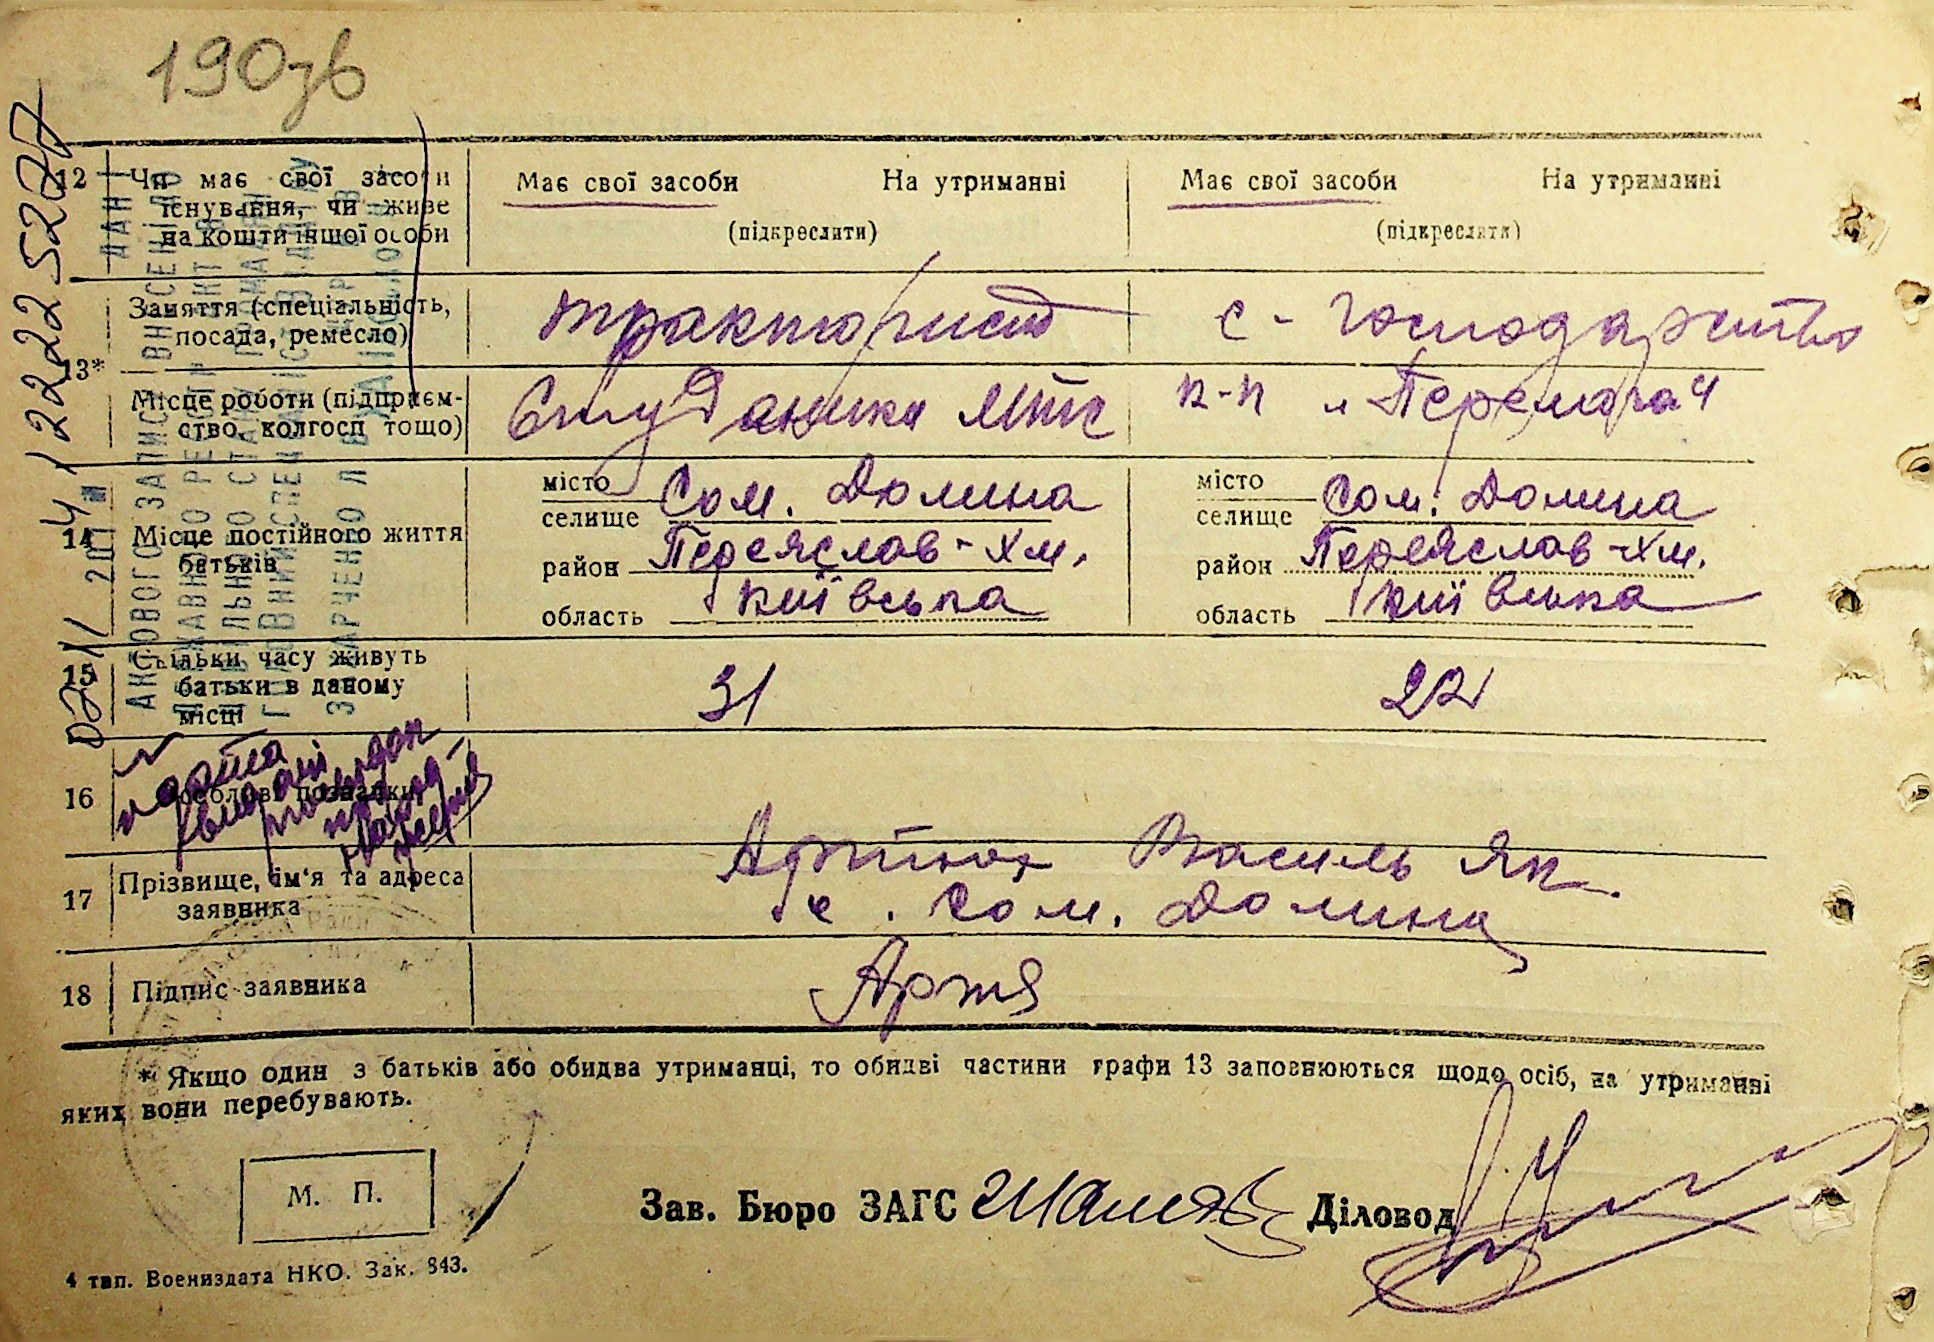 190зв
12 Чи має свої засоби існування, чи живе на кошти іншої особи
Має свої засоби На утриманні
(підкреслити)
Має свої засоби На утриманні
(підкреслити)
13*
Заняття (спеціальність, посада, ремесло)
тракторист
с-господарство
Місце роботи (підприємство, колгосп тощо)
Студеники МТС
к-п „Перемога"
14 Місце постійного життя батьків
місто
селище Сом. Долина
район Переяслав-Хм.
область Київська
місто
селище Сом. Долина
район Переяслав-Хм.
область Київська
15 Скільки часу живуть батьки в даному місці
31
22
16 Особливі познатки
17 Прізвище, ім'я та адреса заявника
Артюх Василь Як.
с. Сом. Долина
18 Підпис заявника
* Якщо один з батьків або обидва утриманці, то обидві частини графи 13 заповнюються щодо осіб, на утриманні
яких вони перебувають.
М. П.
Зав. Бюро ЗАГС
Діловод
4 тип. Воениздата НКО. Зак. 843.